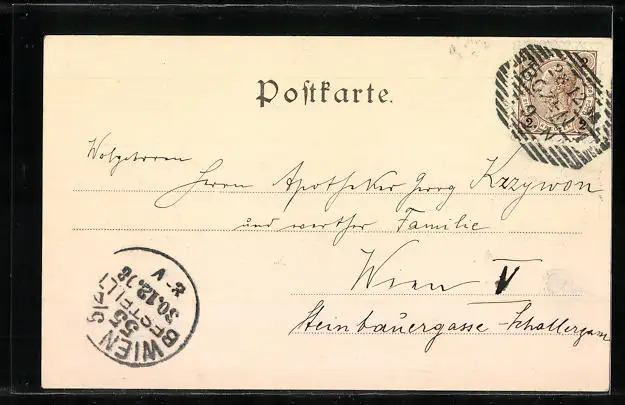 Postkarte.
Wolgeboren
Herrn Apotheker Georg Krzywon
und werther Familie
Wien V
Steinbauergasse - Schallergasse
WIEN
55
BESTELLT
30.12.98
8-V
2 2